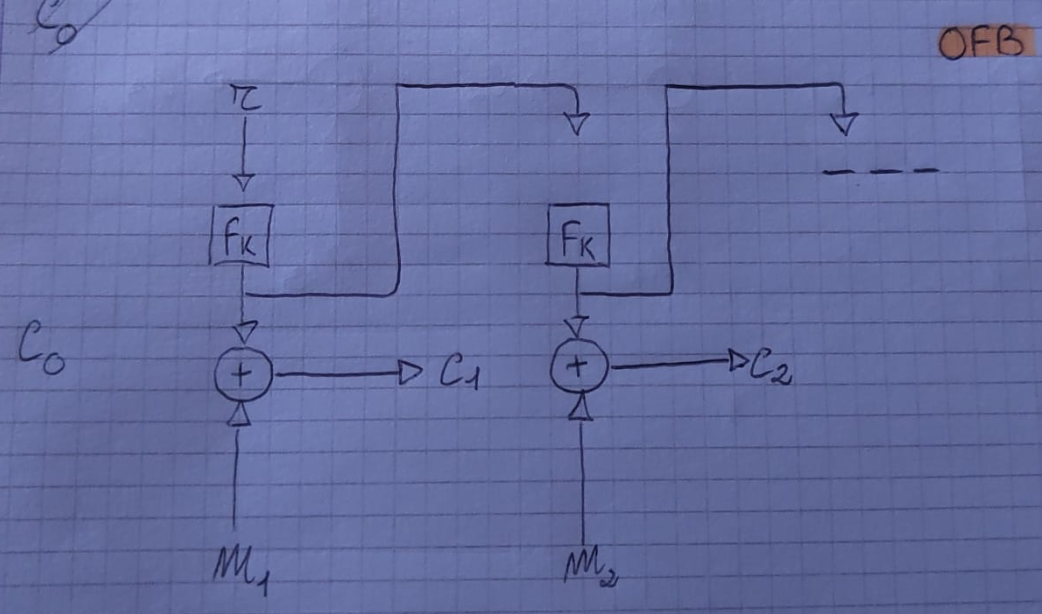 C₀
OFB
r
Fₖ Fₖ
+ +
C₀ C₁ C₂
m₁ m₂